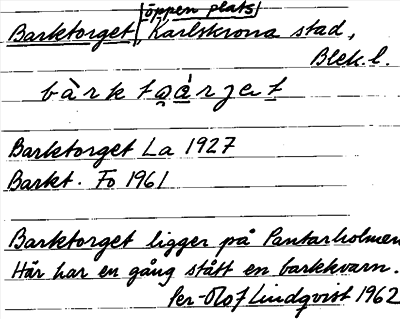 öppen plats
Barktorget, Karlskrona stad,
Blek. l.
Barktorget La 1927
Barkt. Fo 1961
Barktorget ligger på Pantarholmen
Här har en gång stått en barkkvarn.
Per-Olof Lindqvist 1962